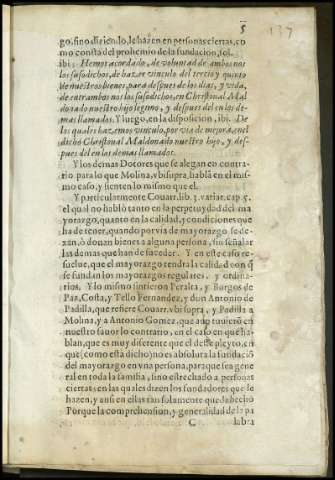 5
137
go, sino diziendo, le hazen en personas ciertas, co
mo consta del prohemio de la fundacion, fol.
ibi: Hemos acordado, de voluntad de ambos nos
los susodichos, de hazer vinculo del tercio y quinto
de nuestros bienes, para despues de los dias, y vida,
de entrambos nos los susodichos, en Christoual Mal
donado nuestro hijo legitimo, y despues del en los de
mas llamados. Y luego, en la disposicion, ibi. De
los quales hazemos vinculo, por via de mejora, en el
dicho Christoual Maldonado nuestro hijo, y des-
pues del en los demas llamados.
Y los demas Dotores que se alegan en contra-
rio para lo que Molina, vbi supra, hablã en el mis
mo caso, y sienten lo mismo que el.
Y particularmente Couarr. lib. 3. variar. cap. 5.
el qual no habló tanto en la perpetuydad del ma
yorazgo, quanto en la calidad, y condiciones que
ha de tener, quando por via de mayorazgo se de-
xan, o donan bienes a alguna persona, sin señalar
las demas que han de suceder. Y en este caso re-
suelue, que el mayorazgo tendra la calidad con q̃
se fundan los mayorazgos regulares, y ordina-
rios. Y lo mismo sintieron Peralta, y Burgos de
Paz, Costa, y Tello Fernandez, y don Antonio de
Padilla, que refiere Couarr. vbi supra, y Padilla a
Molina, y a Antonio Gomez, que aunq̃ tuuierõ en
nuestro fauor lo contrario, en el caso en que ha-
blan, que es muy diferente que el deste pleyto, en
que (como està dicho) no es absoluta la fundaciõ
del mayorazgo en vna persona, para que sea ge-
neral en toda la familia, sino estrechado a personas
ciertas, en las quales dizen los fundadores que se
hazen, y ansi en ellas tan solamente queda hecho
Porque la comprehension, y generalidad de la pa
C labra